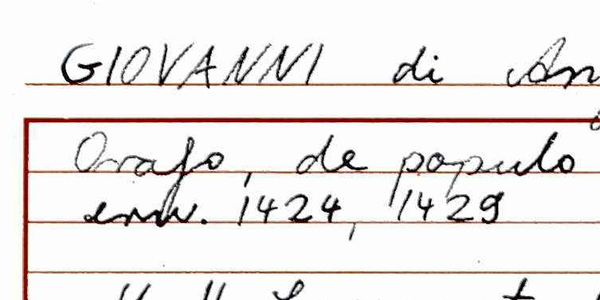 GIOVANNI di An
Orafo, de populo
emv. 1424, 1429